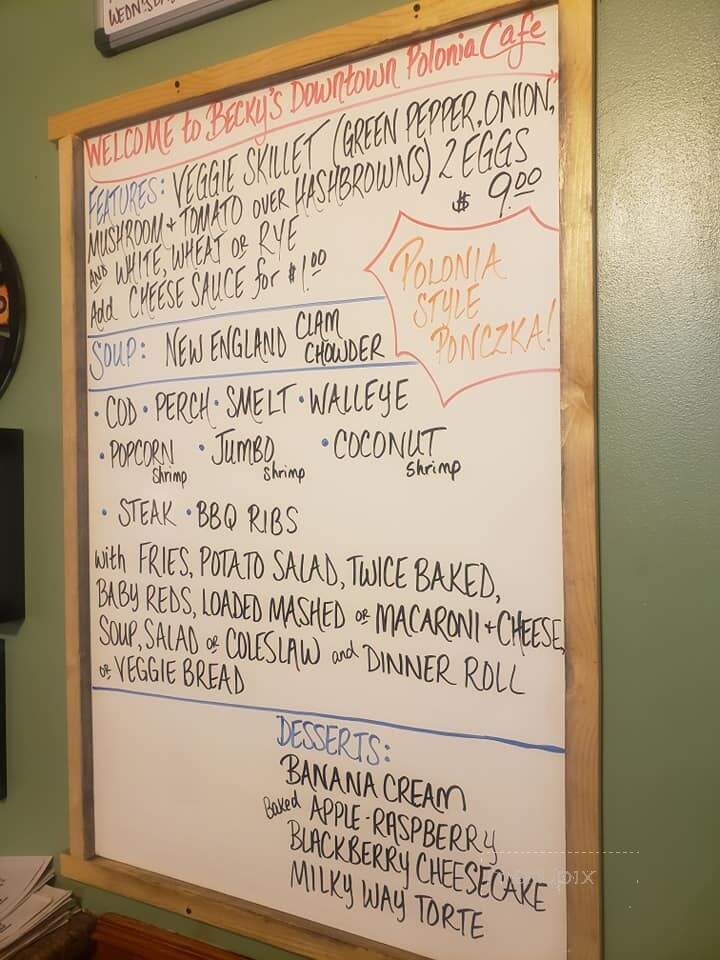 WELCOME to BECKY'S DOWNTOWN POLONIA CAFE
FEATURES: VEGGIE SKILLET (GREEN PEPPER, ONION,
MUSHROOM + TOMATO OVER HASHBROWNS) 2 EGGS
AND WHITE, WHEAT OR RYE $ 9.00
Add CHEESE SAUCE for $1.00
POLONIA
STYLE
PONCZKA!
SOUP: NEW ENGLAND CLAM
CHOWDER
• COD • PERCH • SMELT • WALLEYE
• POPCORN • JUMBO • COCONUT
Shrimp Shrimp Shrimp
• STEAK • BBQ RIBS
with FRIES, POTATO SALAD, TWICE BAKED,
BABY REDS, LOADED MASHED OR MACARONI + CHEESE,
SOUP, SALAD OR COLESLAW and DINNER ROLL
OR VEGGIE BREAD
DESSERTS:
BANANA CREAM
Baked APPLE-RASPBERRY
BLACKBERRY CHEESECAKE
MILKY WAY TORTE